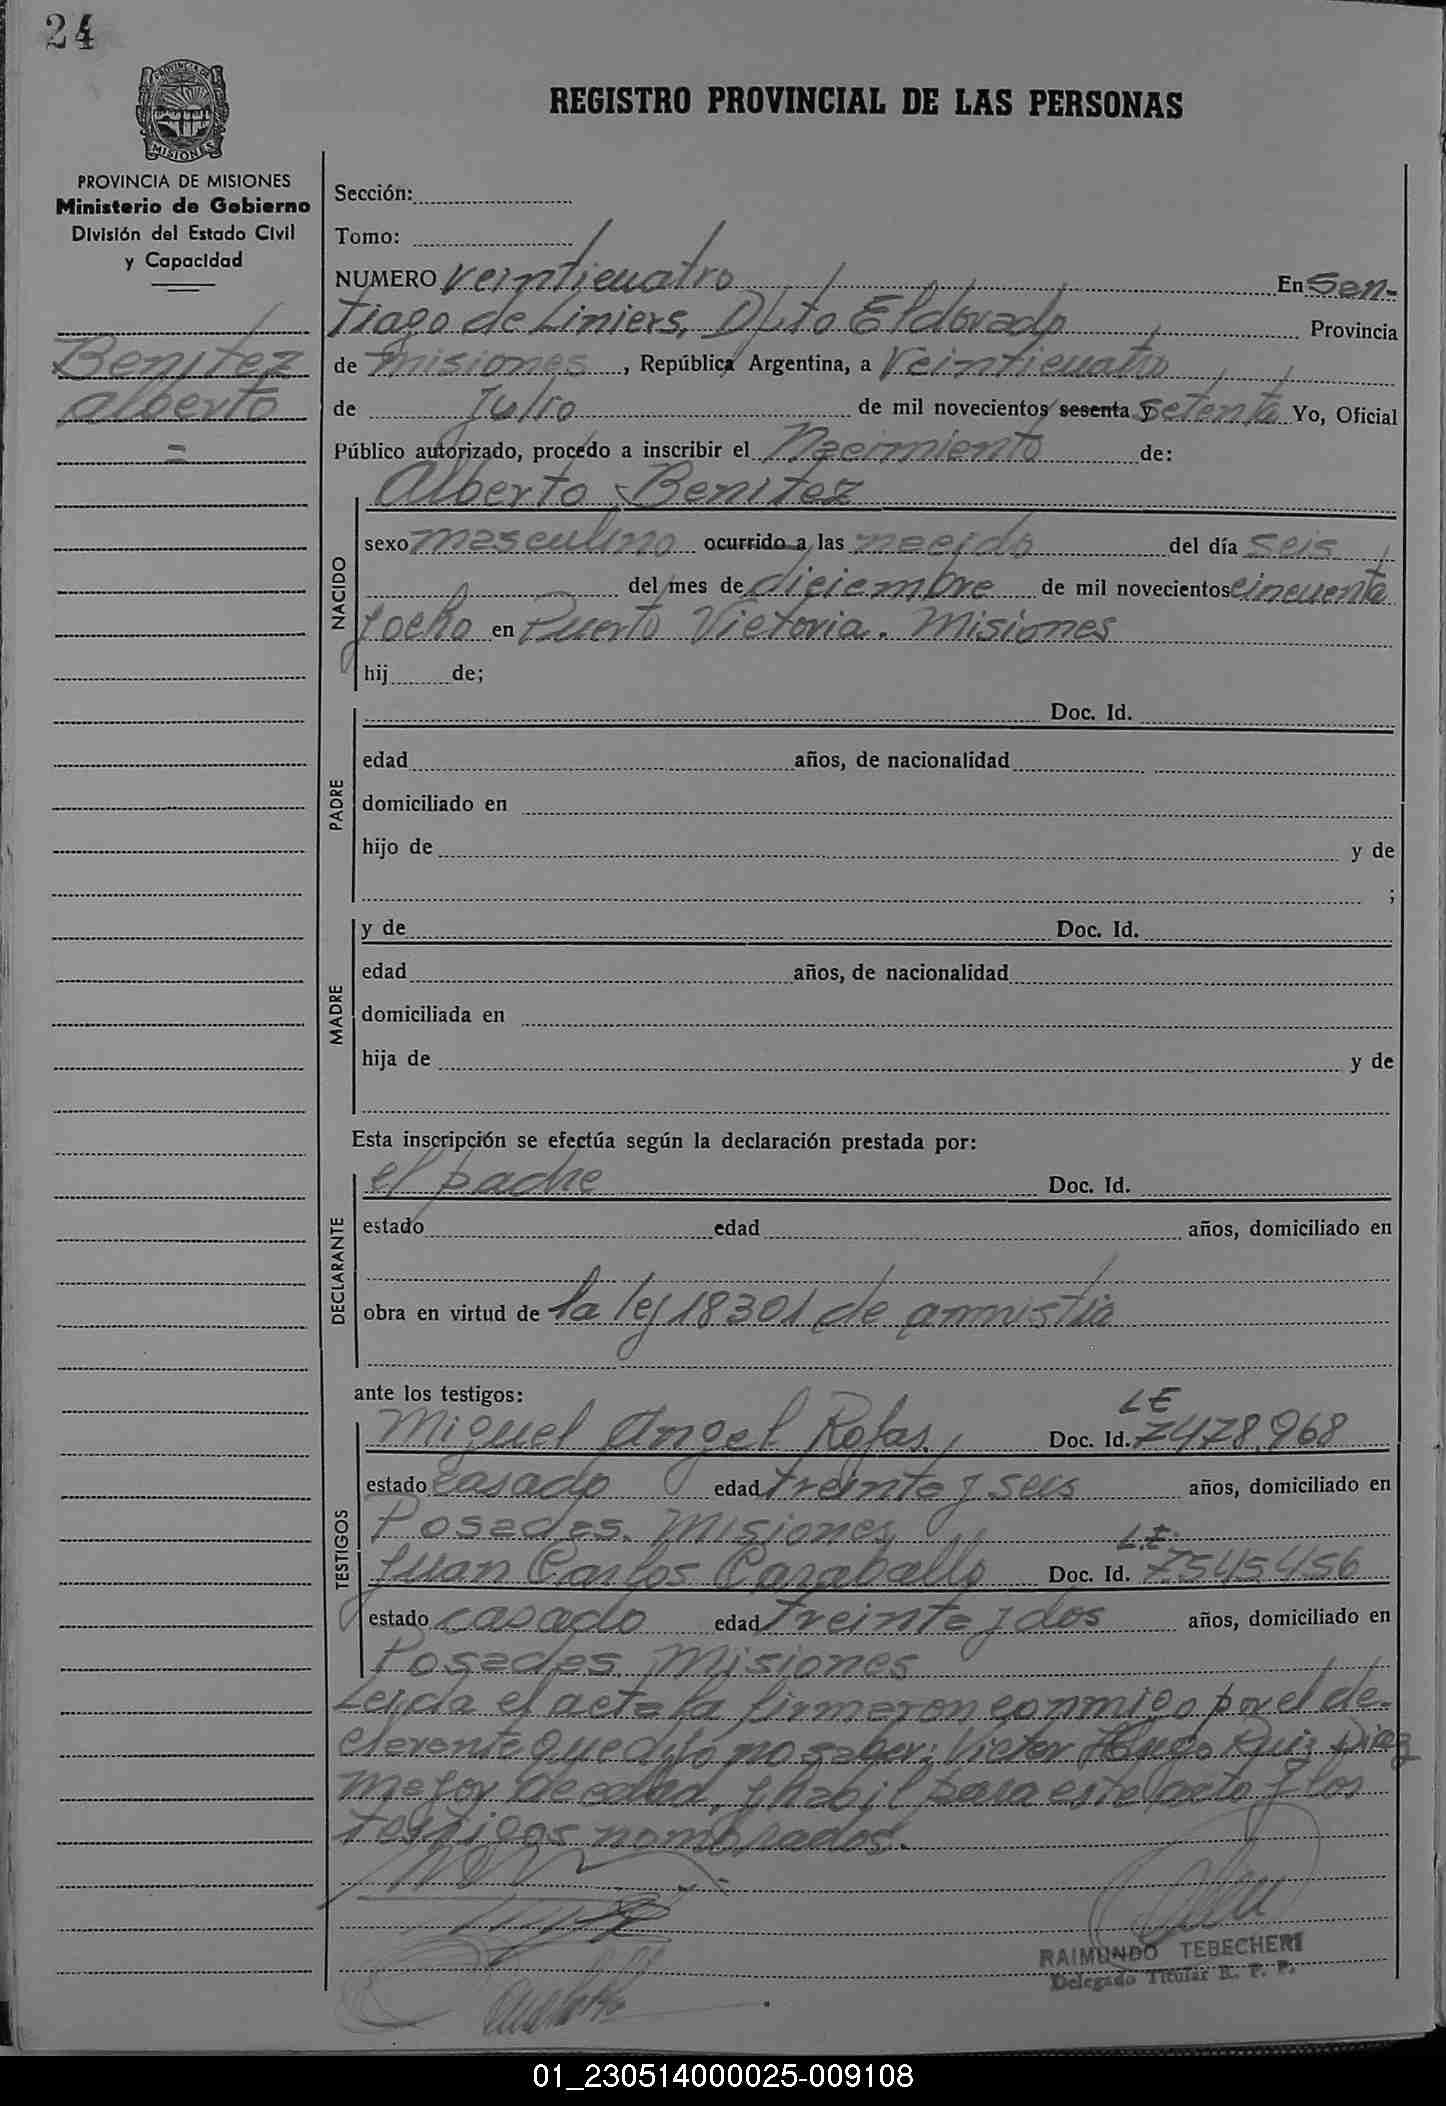 24
PROVINCIA DE MISIONES
PROVINCIA DE MISIONES
Ministerio de Gobierno
División del Estado Civil
y Capacidad
Benitez
Alberto
=
REGISTRO PROVINCIAL DE LAS PERSONAS
Sección:
Tomo:
NUMERO Veinticuatro En San-
tiago de Liniers, Dpto Eldorado Provincia
de Misiones, República Argentina, a Veinticuatro
de Julio de mil novecientos sesenta y Setenta Yo, Oficial
Público autorizado, procedo a inscribir el Nacimiento de:
Alberto Benitez
NACIDO
sexo masculino ocurrido a las nacido del día seis
del mes de diciembre de mil novecientos cincuenta
y ocho en Puerto Victoria. Misiones
hij de;
PADRE
Doc. Id.
edad años, de nacionalidad
domiciliado en
hijo de y de
;
MADRE
y de Doc. Id.
edad años, de nacionalidad
domiciliada en
hija de y de
Esta inscripción se efectúa según la declaración prestada por:
DECLARANTE
el padre Doc. Id.
estado edad años, domiciliado en
obra en virtud de la ley 18301 de amnistia
ante los testigos:
TESTIGOS
LE
Miguel Angel Rojas, Doc. Id. 7478.968
estado casado edad treinta y seis años, domiciliado en
Posadas. Misiones
L.E.
Juan Carlos Caraballo Doc. Id. 7545.456
estado casado edad treinta y dos años, domiciliado en
Posadas Misiones
Leida el acta la firmaron conmigo por el de-
clarante que dijo no saber: Victor Hugo Ruiz Diaz
mayor de edad, y habil para este acto y los
testigos nombrados.
RAIMUNDO TEBECHERI
Delegado Titular R. P. P.
01_230514000025-009108